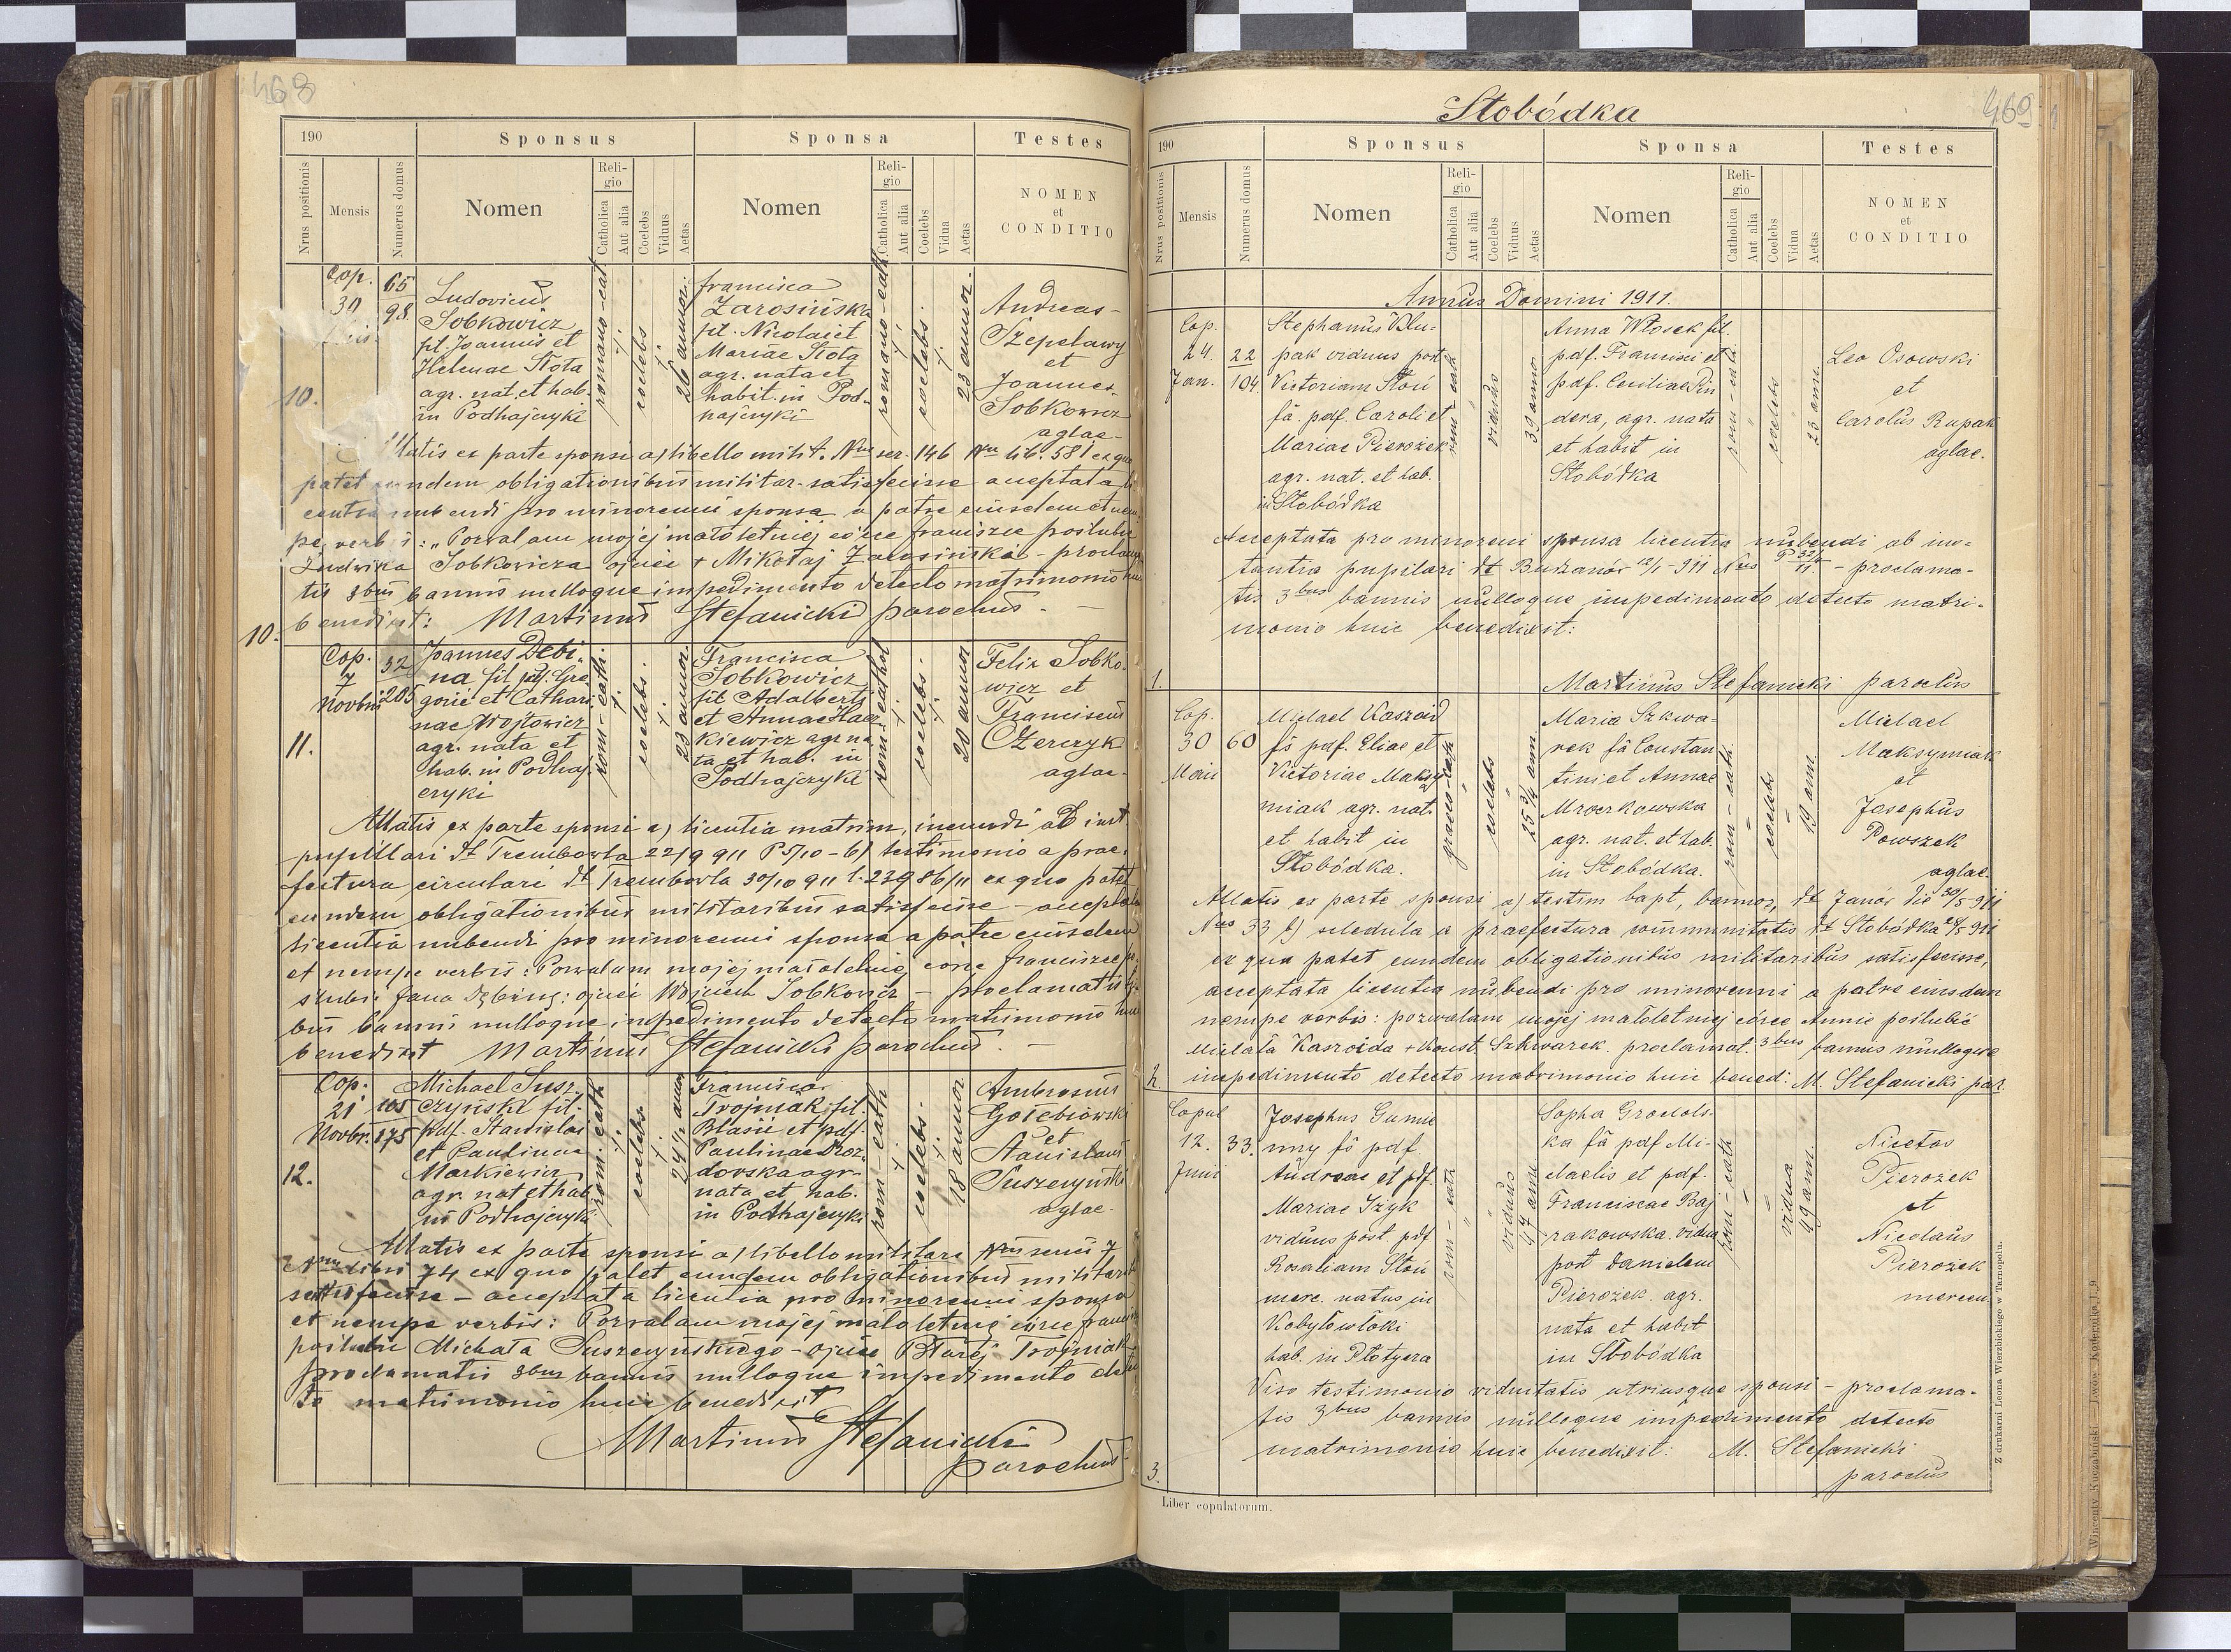 468
190
Sponsus
Sponsa
Testes
Nrus positionis
Mensis
Numerus domus
Nomen
Religio
Catholica
Aut alia
Coelebs
Viduus
Aetas
Nomen
Religio
Catholica
Aut alia
Coelebs
Vidua
Aetas
NOMEN
et
CONDITIO
10.
Cop.
30
65
98.
Ludovicus
Sobkowicz
fil. Joannis et
Helenae Stota
agr. nat. et hab.
in Podhajczyki
romano-cath
coelebs
26 annor.
Francisca
Zarosińska
fil. Nicolai et
Mariae Stota
agr. nata et
habit. in Pod-
hajczyki
romano-cath
coelebs
23 annor.
Andreas
Szepelawy
et
Joannes
Sobkowicz
aglae
Allatis ex parte sponsi a) libello milit. Nrus ser. 146 Nru lib. 581 ex quo
patet eundem obligationibus militar. satisfecisse acceptata li
centia nubendi pro minorenni sponsa a patre eiusdem et nem
pe verbis: "Pozwalam mojej małoletniej córce Franciszce poślubić
Ludwika Sobkowicza ojciec + Mikołaj Zarosiński - proclama
tis 3bus bannis nulloque impedimento detecto matrimonio huic
benedixit: Martinus Stefanicki parochus.
10.
11.
Cop.
7
Novbris
32
205
Joannes Debi
na fil pdf. Gre
gorii et Cathari
nae Wojtowicz
agr. nata et
hab. in Podhaj
czyki
rom-cath.
coelebs
23 annor.
Francisca
Sobkowicz
fil Adalberti
et Annae Hac
kiewicz agr na
ta et hab. in
Podhajczyki
rom-cathol
coelebs
20 annor
Felix Sobko
wicz et
Franciscus
Czerczyk
aglae
Allatis ex parte sponsi a) licentia matrim. ineundi ab inst.
pupillari dt Trembowla 22/9 911 P 5/10 - b) testimonio a prae
fectura circulari dt Trembowla 30/10 911 l. 23986/11 ex quo patet
eundem obligationibus militaribus satisfecisse - acceptata
licentia nubendi pro minorenni sponsa a patre eiusdem
et nempe verbis: Pozwalam mojej małoletniej córce Franciszce p.
ślubić Jana Dębinę: ojciec Wojciech Sobkowicz - proclamatis 3
bus bannis nulloque impedimento detecto matrimonio huic
benedixit Martinus Stefanicki parochus.
12.
Cop.
21
Novbr.
105
175
Michael Susz
czyński fil.
pdf. Stanislai
et Paulinae
Markiewicz
agr. nat et hab
in Podhajczyki
rom. cath
coelebs
24 1/2 ann
Francisca
Trojniak fil.
Blasii et pdf.
Paulinae Roz
dovska agr.
nata et hab.
in Podhajczyki
rom-cath
coelebs
18 annor
Ambrosius
Gołebiowski
et
Stanislaus
Suszczyński
aglae
Allatis ex parte sponsi a) libello militari Nri serii 7
Nru libri 74 ex quo patet eundem obligationibus militar
satisfecisse - acceptata licentia pro minorenni sponsa
et nempe verbis: Pozwalam mojej małoletniej córce Franciszce
poślubić Michała Suszczyńskiego - ojciec Błażej Trojniak
proclamatis 3bus bannis nulloque impedimento detec
to matrimonio huic benedixit
Martinus Stefanicki
parochus
469
Słobódka
190
Sponsus
Sponsa
Testes
Nrus positionis
Mensis
Numerus domus
Nomen
Religio
Catholica
Aut alia
Coelebs
Viduus
Aetas
Nomen
Religio
Catholica
Aut alia
Coelebs
Vidua
Aetas
NOMEN
et
CONDITIO
Annus Domini 1911.
Cop.
24.
Jan.
22
104
Stephanus Klu-
pak viduus post
Victoriam Stoń
fs. pdf. Caroli et
Mariae Pierożek
agr. nat. et hab.
in Słobódka
rom-cath
viduus
39 anno.
Anna Włosek fil.
pdf. Francisci et
pdf. Ceciliae Pin
dera, agr. nata
et habit in
Słobódka
rom-cath
coelebs
23 ann.
Leo Osowski
et
Carolus Rupak
aglae.
Acceptata pro minorenni sponsa licentia nubendi ab ins-
tantia pupilari dt Budzanów 12/1 - 911 Nrus P 32/11. - proclama-
tis 3bus bannis nulloque impedimento detecto matri-
monio huic benedixit:
1.
Martinus Stefanicki parochus
Cop.
30
Maii
60
Michael Kaszoid
fs pdf. Eliae et
Victoriae Maksy
miak agr. nat.
et habit in
Słobódka.
graeco-cath
coelebs
25 3/4 ann.
Maria Szkwa-
rek fa Constan
tini et Annae
Mroczkowska
agr. nat. et hab.
in Słobódka.
rom-cath.
coelebs
19 ann.
Michael
Maksymiak
et
Josephus
Powszek
aglae.
Allatis ex parte sponsi a) testim bapt, bannor, dt Janów die 30/5-911
Nrus 33 b) schedula a praefectura communitatis dt Słobódka 28/5 911
ex qua patet eundem obligationibus militaribus satisfecisse,
acceptata licentia nubendi pro minorenni a patre eiusdem
nempe verbis: pozwalam mojej małoletniej córce Annie poślubić
Michała Kaszoida + Konst. Szkwarek. proclamat. 3bus bannis nulloque
2. impedimento detecto matrimonio huic bened: M. Stefanicki par.
Copul
12.
Junii
33.
Josephus Gumie
nny fs pdf.
Andreae et pdf.
Mariae Izyk
viduus post. pdf.
Rosaliam Stoń
merc. natus in
Kobyłowłoki
hab. in Płotycza
rom-cath
viduus
47 ann
Sopha Grodols-
ka fa pdf Mi-
chaelis et pdf.
Franciscae Baj
rakowska. vidua
post Danielem
Pierożek. agr.
nata et habit
in Słobódka
rom-cath
vidua
49 ann.
Nicetas
Pierożek
et
Nicolaus
Pierożek
mercen.
Viso testimonio viduitatis utriusque sponsi - proclama-
tis 3bus bannis nulloque impedimento detecto
matrimonio huic benedixit: M. Stefanicki
parochus
3.
Liber copulatorum.
Z drukarni Leona Wierzbickiego w Tarnopolu.
Wincenty Kuczabiński - Lwów, Kopernika l. 9